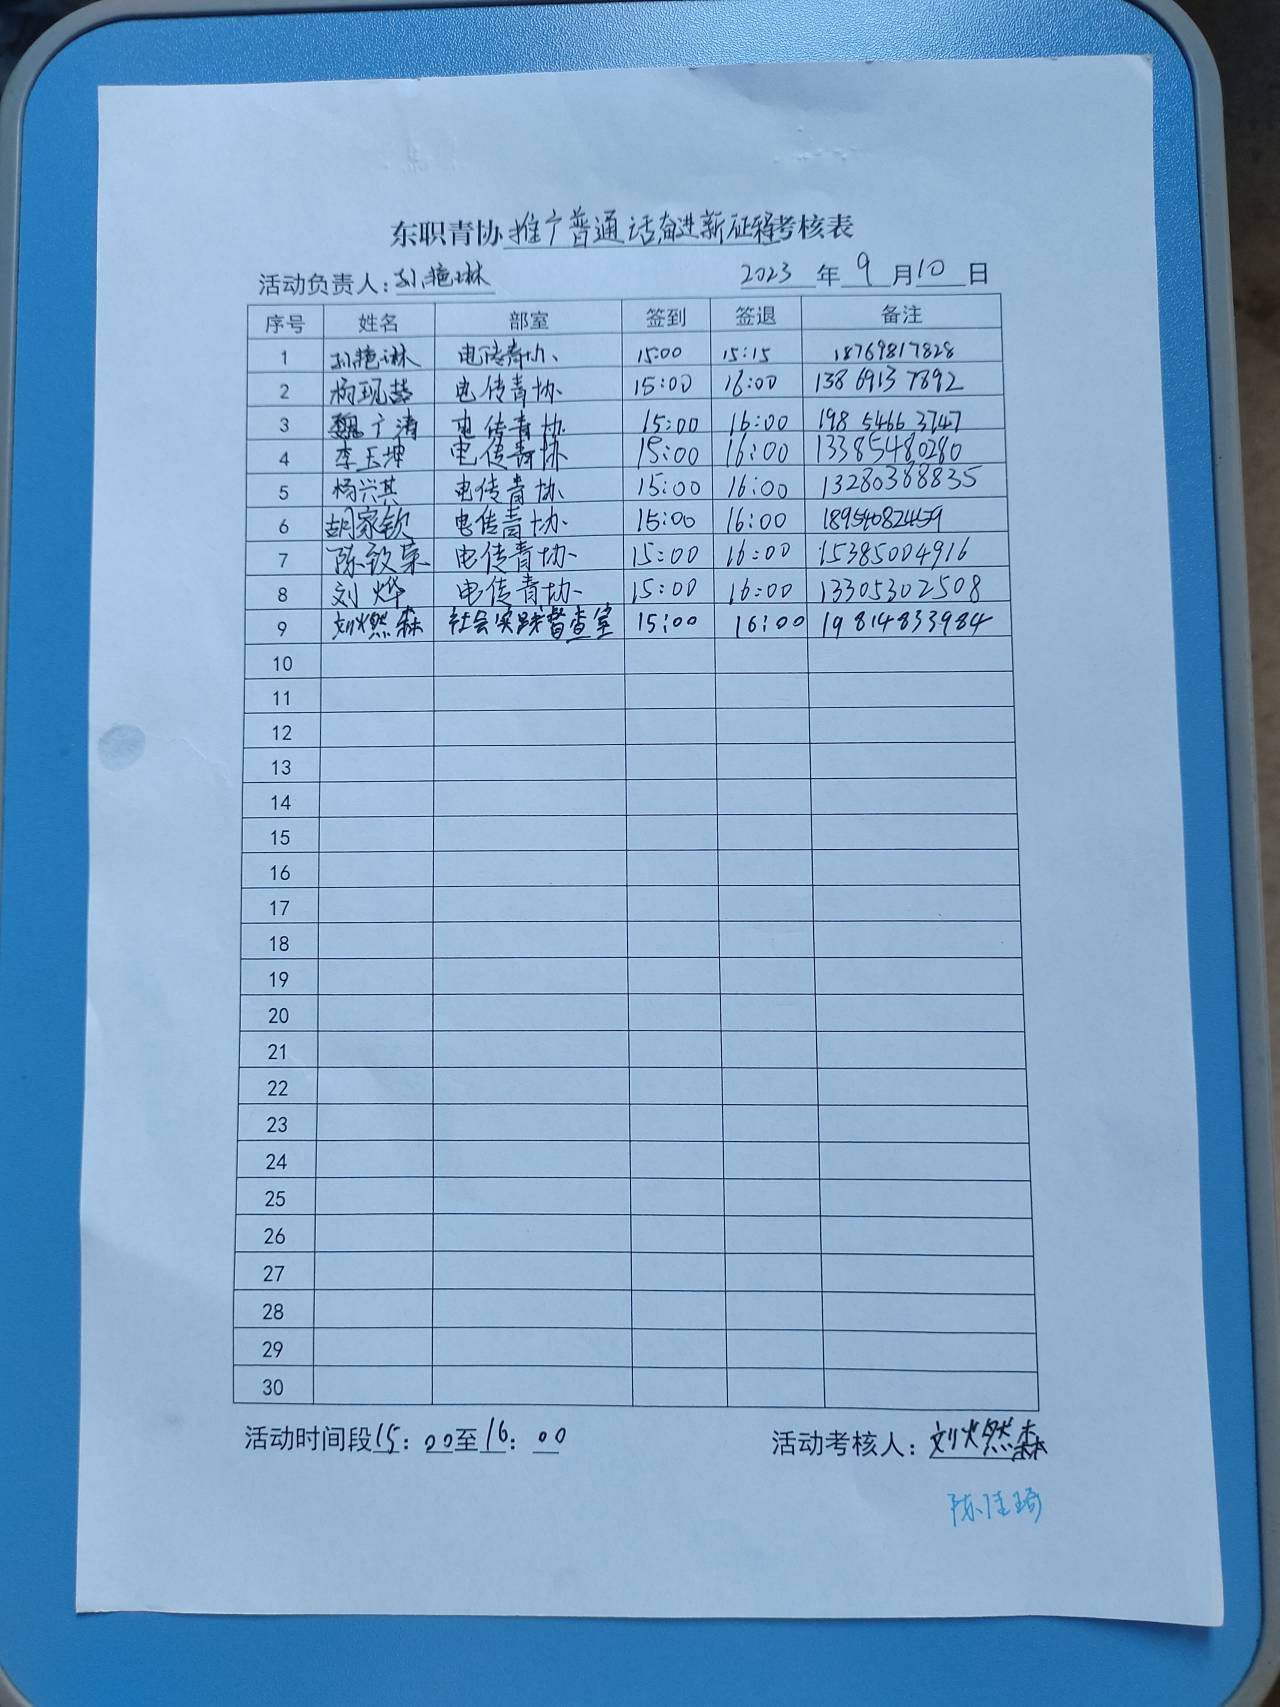 东职青协推广普通话奋进新征程考核表
活动负责人：孙艳琳 2023年9月10日
序号 姓名 部室 签到 签退 备注
1 孙艳琳 电传青协 15:00 15:15 18769817828
2 杨现喆 电传青协 15:00 16:00 13869137892
3 魏广涛 电传青协 15:00 16:00 19854663747
4 李玉坤 电传青协 15:00 16:00 13385480280
5 杨兴其 电传青协 15:00 16:00 13280388835
6 胡家钦 电传青协 15:00 16:00 18954082459
7 陈致荣 电传青协 15:00 16:00 15385004916
8 刘烨 电传青协 15:00 16:00 13305302508
9 刘燃森 社会实践督查室 15:00 16:00 19814833984
10
11
12
13
14
15
16
17
18
19
20
21
22
23
24
25
26
27
28
29
30
活动时间段15：00至16：00 活动考核人：刘燃森
陈佳琦